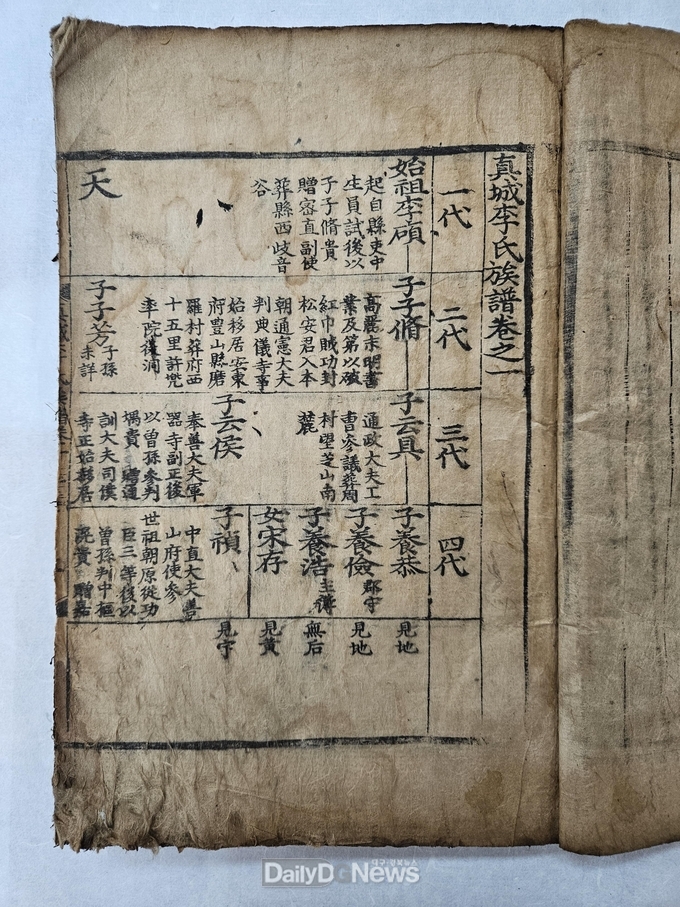 真城李氏族譜卷之一
一代
始祖李碩
起自縣吏中
生員試後以
子子脩貴
贈密直副使
葬縣西岐音
谷
天
二代
子子脩
高麗末明書
業及第以破
紅巾賊功封
松安君入本
朝通憲大夫
判典儀寺事
始移居安東
府豊山縣磨
羅村葬府西
十五里許兜
率院後洞
子子芳
子孫
未詳
三代
子云具
通政大夫工
曹參議葬周
村望芝山南
麓
子云侯
奉善大夫軍
器寺副正後
以曾孫參判
堣貴贈通
訓大夫司僕
寺正始
四代
子養恭
見地
子養儉
郡守
見地
子養浩
主簿
無后
女宋存
見黃
子禎
見宇
中直大夫善
山府使參
世祖朝原從功
臣三等後以
曾孫判中樞
滉貴贈嘉
DailyDgNews